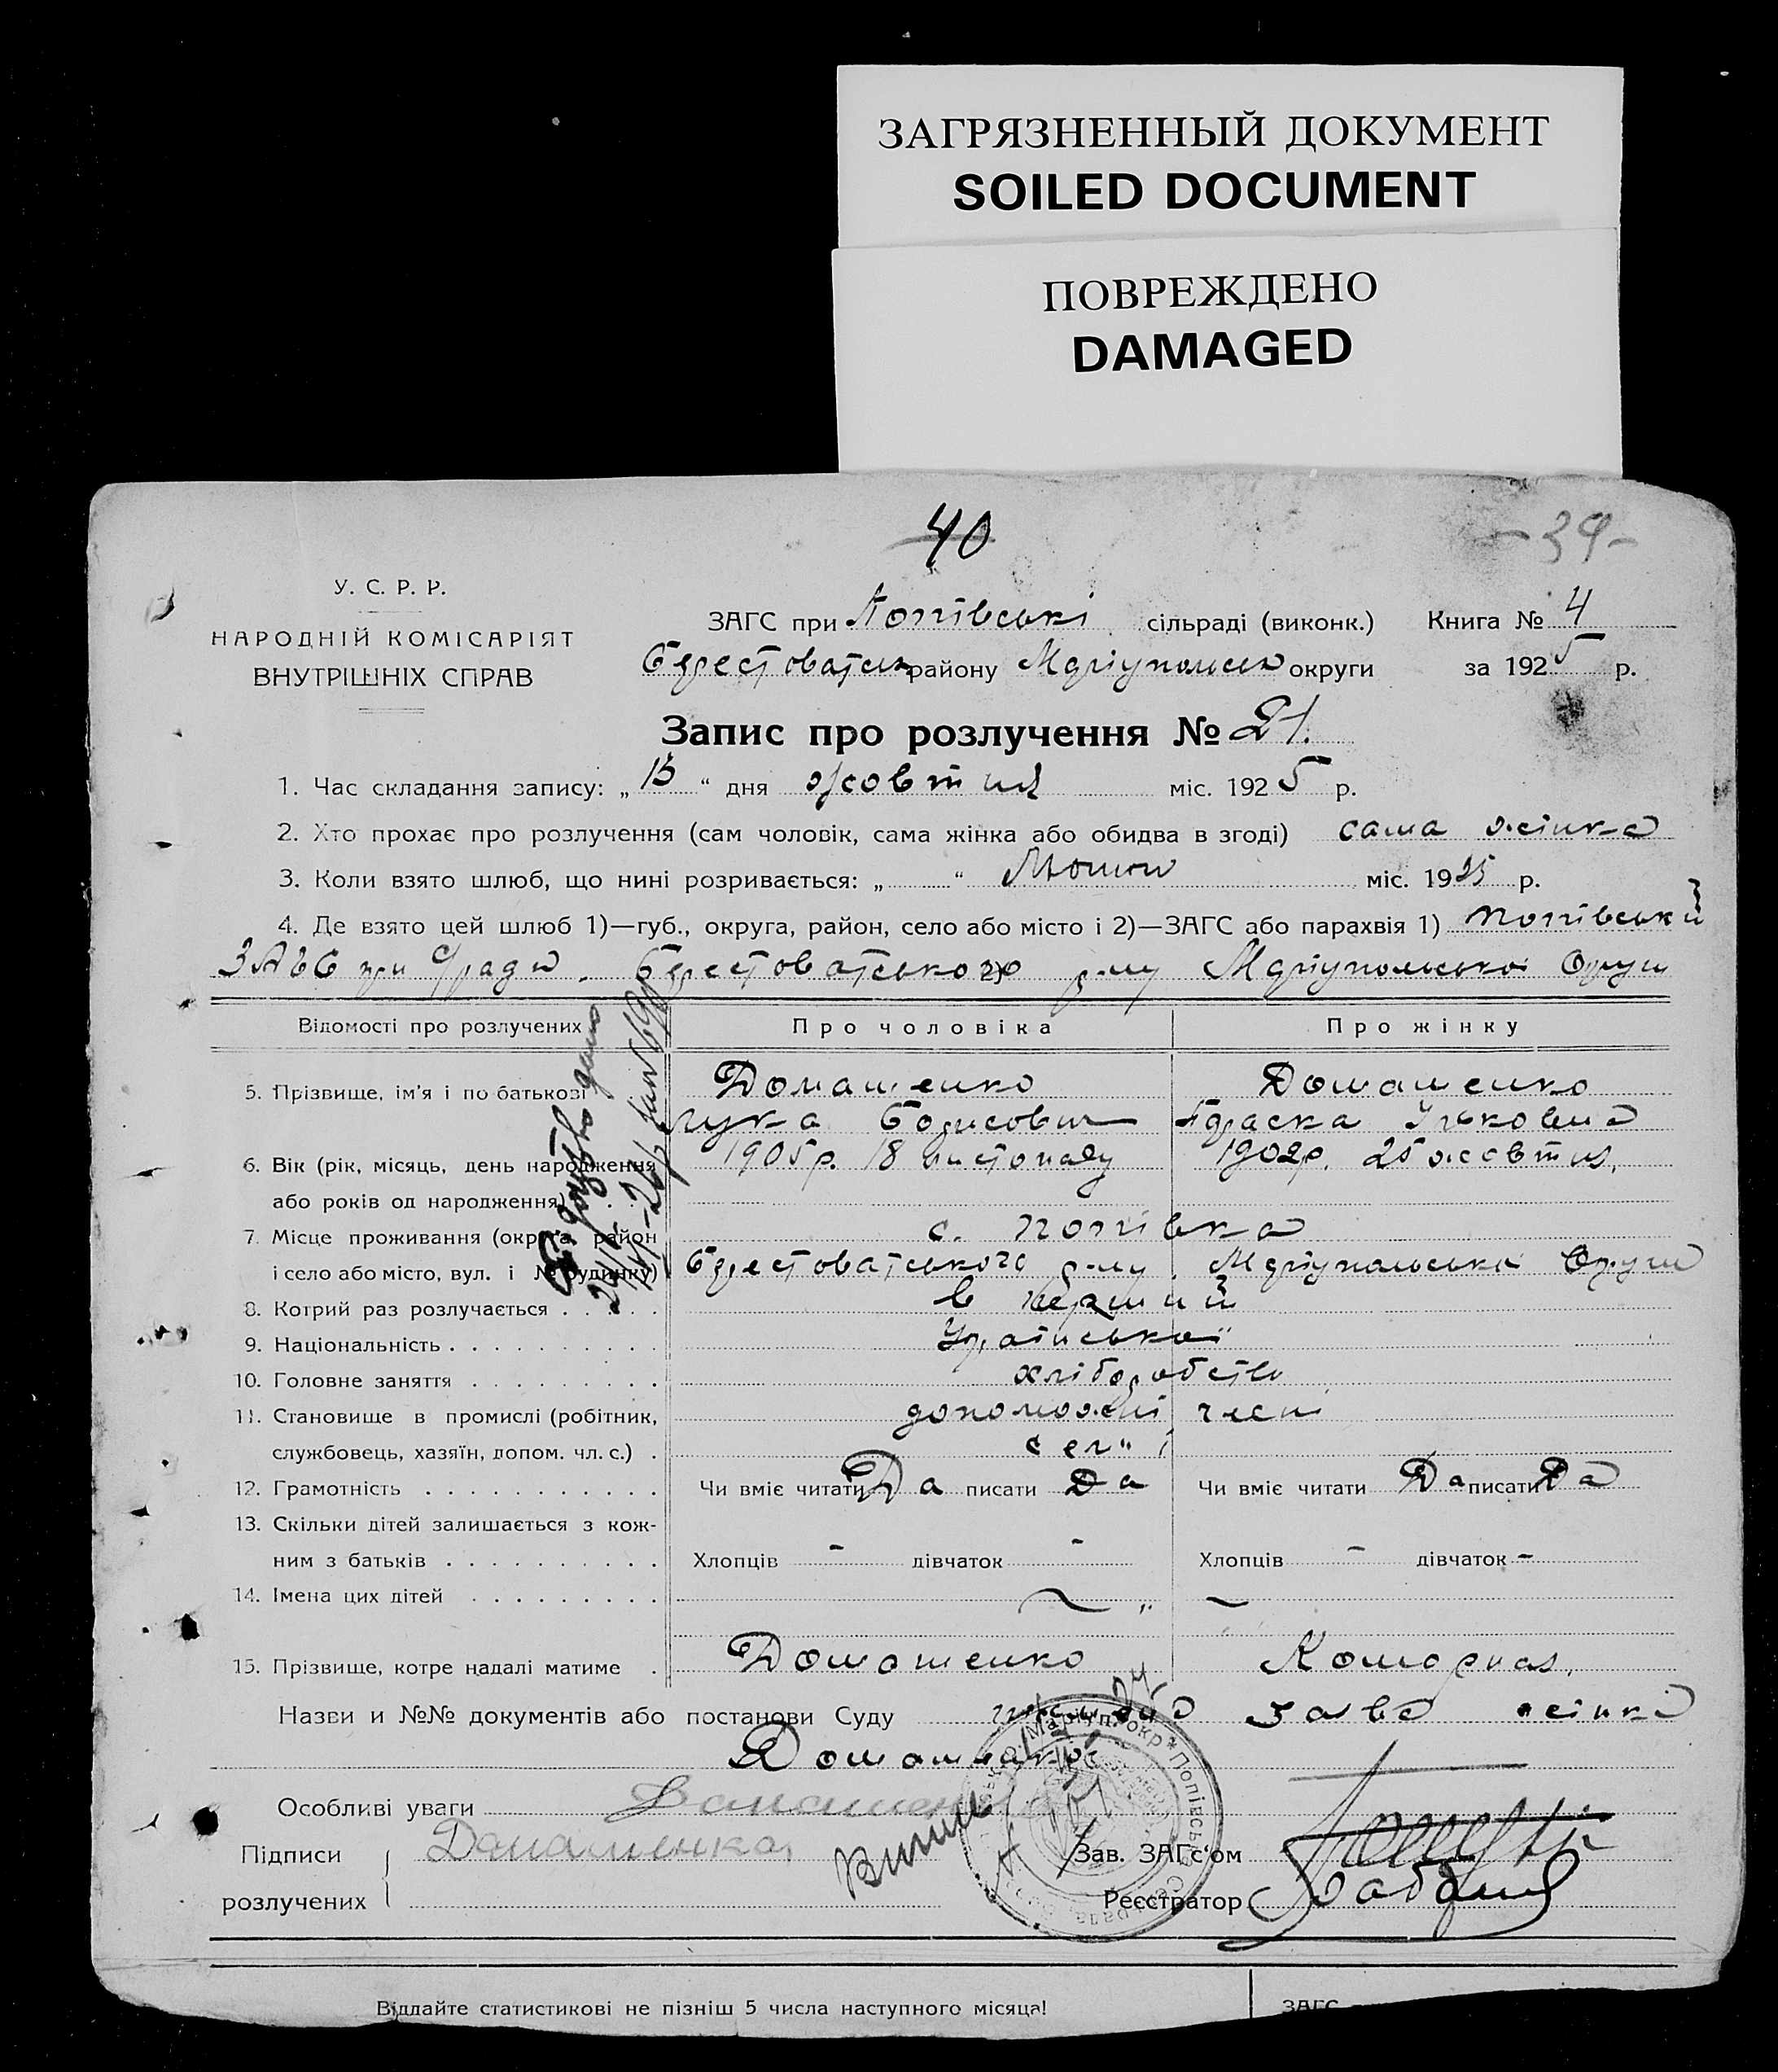 ЗАГРЯЗНЕННЫЙ ДОКУМЕНТ
SOILED DOCUMENT
ПОВРЕЖДЕНО
DAMAGED
40
-39-
У. С. Р. Р.
НАРОДНІЙ КОМІСАРІЯТ
ВНУТРІШНІХ СПРАВ
ЗАГС при Попівські сільраді (виконк.) Книга № 4
району Маріупольск округи за 1925 р.
Запис про розлучення № 21.
1. Час складання запису: „ 13 “ дня жовтня міс. 1925 р.
2. Хто прохає про розлучення (сам чоловік, сама жінка або обидва в згоді) сама жінка
3. Коли взято шлюб, що нині розривається: „ “ міс. 1925 р.
4. Де взято цей шлюб 1)—губ., округа, район, село або місто і 2)—ЗАГС або парахвія 1) Попівський
ЗАГС при С/раді. Берестоватського р-ну Маріупольської Округи
Відомості про розлучених Про чоловіка Про жінку
5. Прізвище, ім'я і по батькові Домашенко Домашенко
Лука Борисович Параска Ільковна
6. Вік (рік, місяць, день народження 1905р. 18 листопаду 1902р. 25 жовтня.
або років од народження)
7. Місце проживання (округа, район с. Попівка
і село або місто, вул. і № будинку) Берестоватського р-ну. Маріупольські Округи
8. Котрий раз розлучається в перший
9. Національність Української
10. Головне заняття хліборобство
11. Становище в промислі (робітник, допоможні члени
службовець, хазяїн, допом. чл. с.) сем"ї
12. Грамотність Чи вміє читати Да писати Да Чи вміє читати Да писати Да
13. Скільки дітей залишається з кож-
ним з батьків Хлопців - дівчаток - Хлопців - дівчаток -
14. Імена цих дітей
15. Прізвище, котре надалі матиме Домашенко Коморная.
Назви и №№ документів або постанови Суду заява жінки
Домашенко
Особливі уваги Домашенко
Підписи Домашенко
Зав. ЗАГс'ом
розлучених Реєстратор
Маріуп. окр * Попівська
Віддайте статистикові не пізніш 5 числа наступного місяця!
ЗАГС